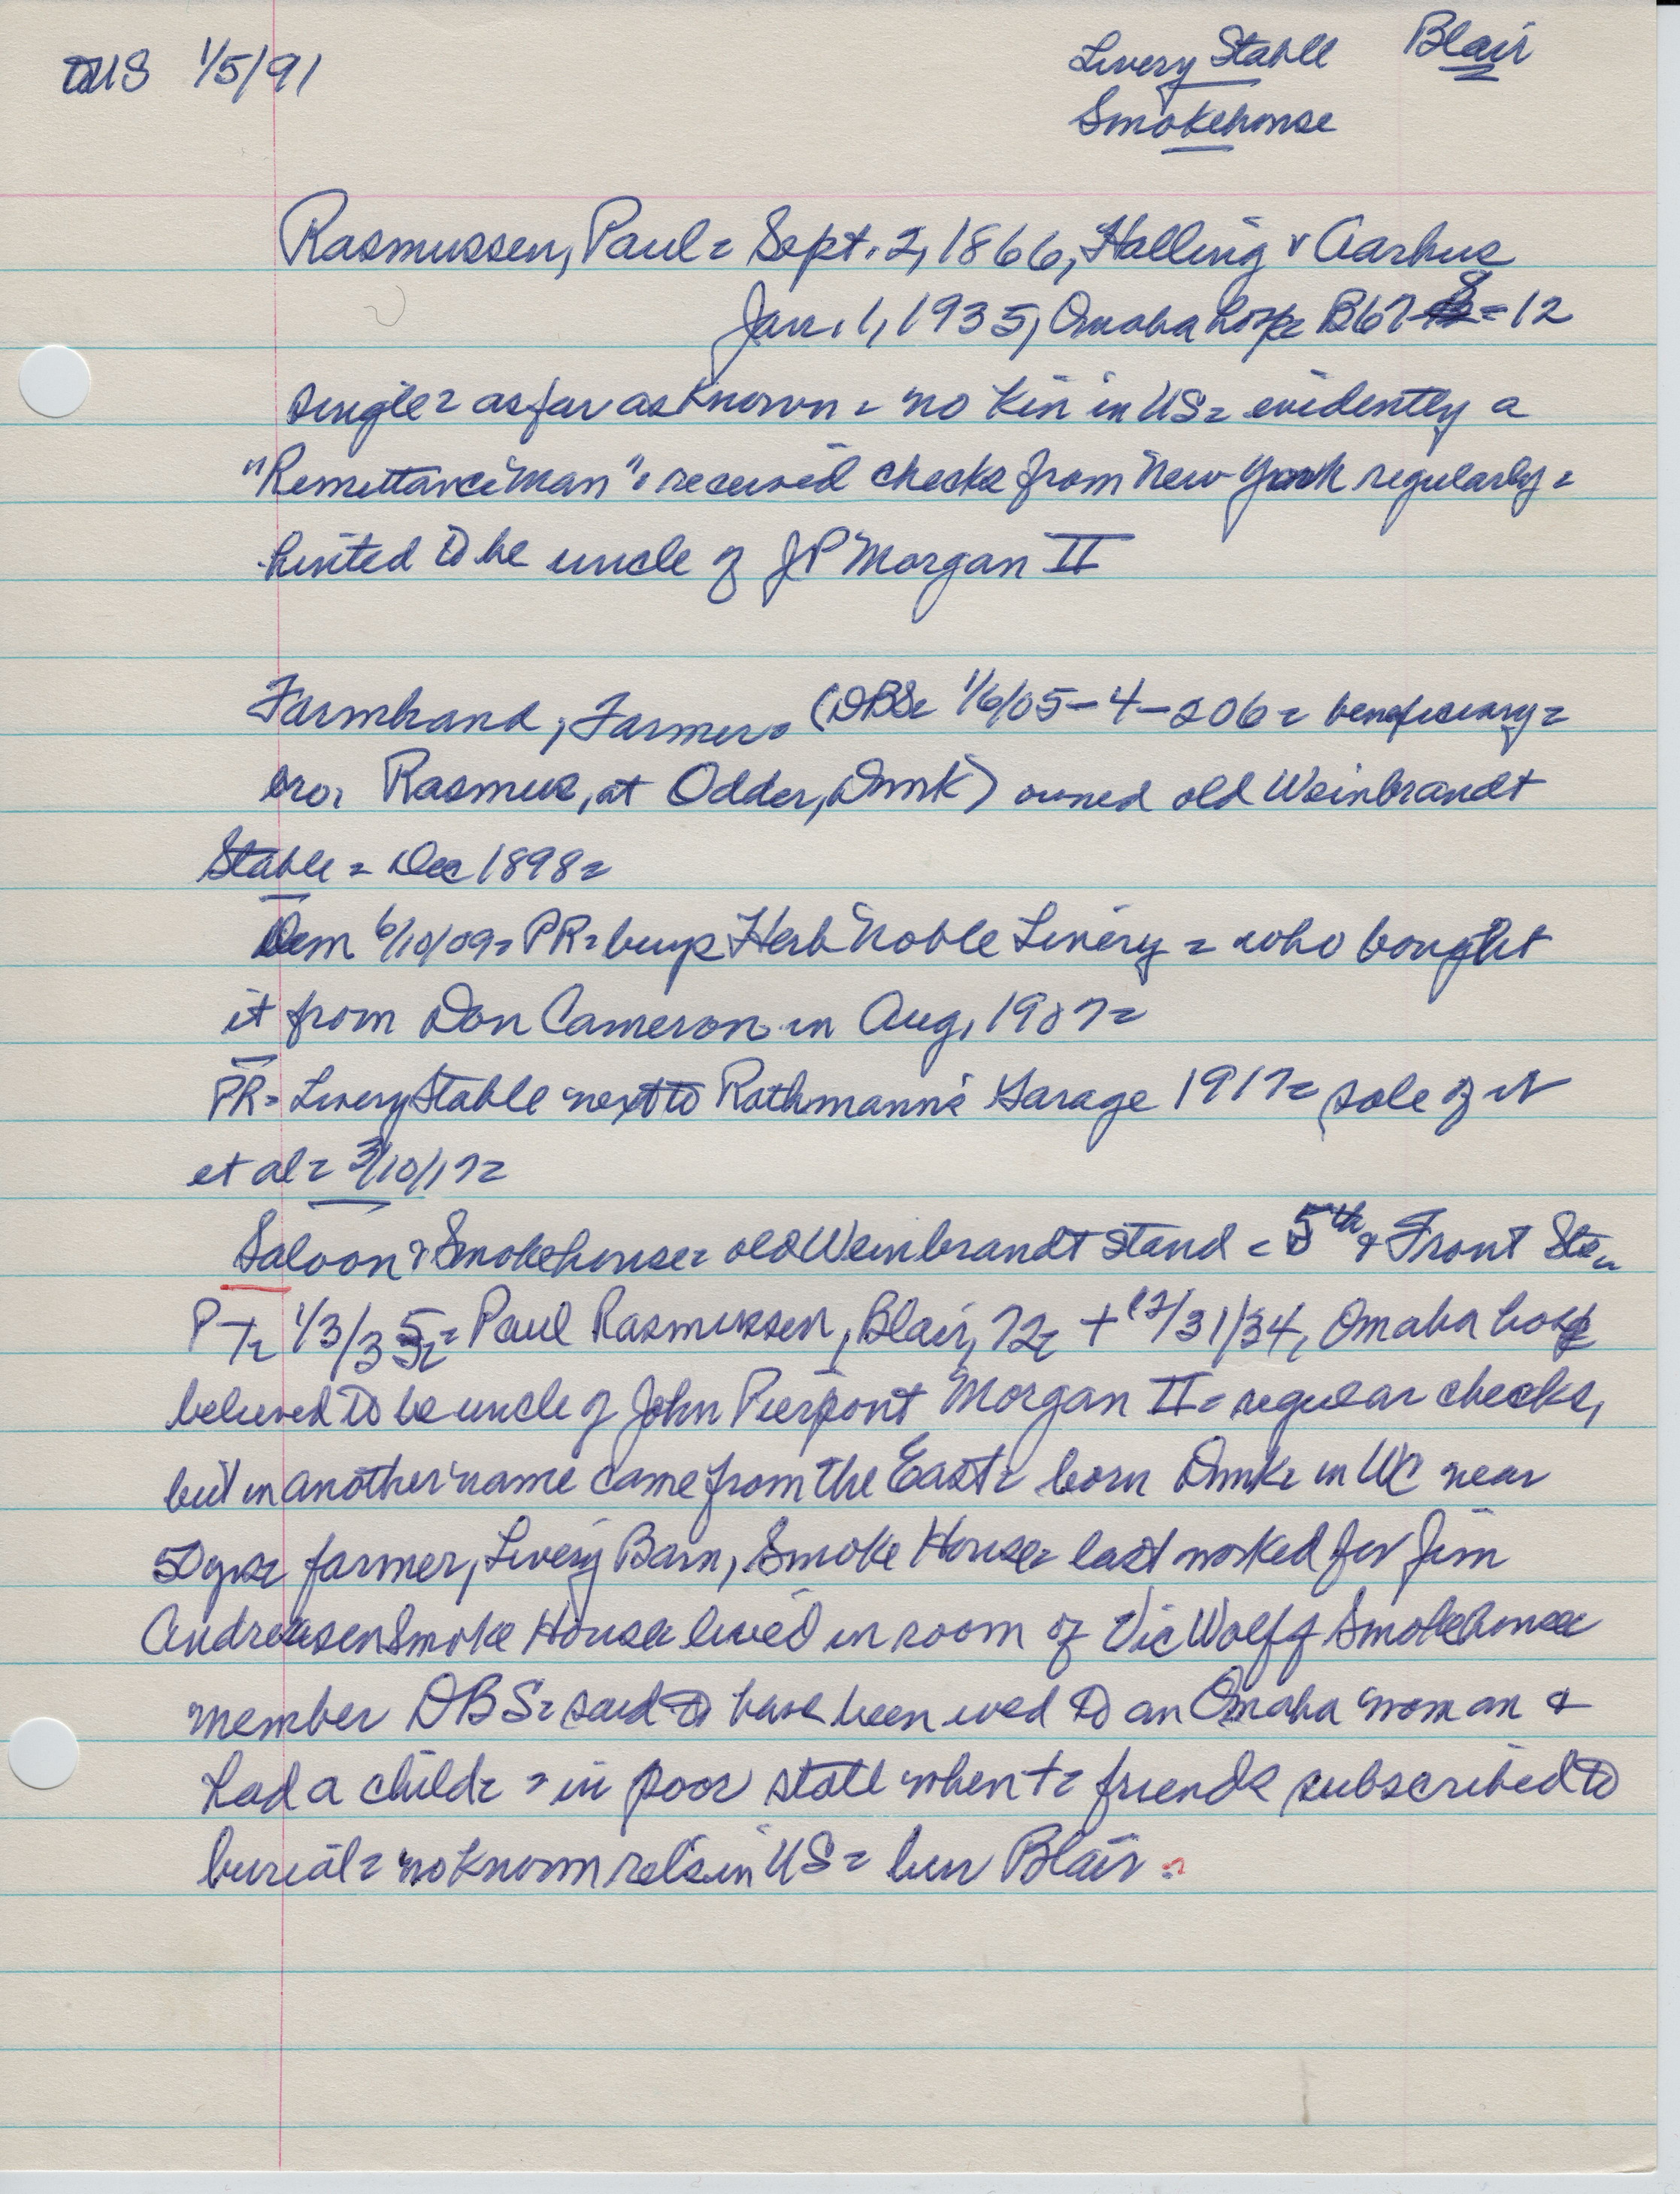 US 1/5/91
Livery Stable Blair
Smokehouse
Rasmussen, Paul = Sept. 2, 1866, Halling v Aarhus
Jan. 1, 1935, Omaha hosp = B67 8 = 12
single = as far as known = no kin in US = evidently a
"Remittance man" = received checks from New York regularly =
hinted to be uncle of JP Morgan II
Farmhand, Farmer = (DBS = 1/6/05-4-206 = beneficiary =
bro. Rasmus, at Odder, Dmk) owned old Weinbrandt
Stable = Dec 1898 =
Dem 6/10/09 = PR = buys Herb Noble Livery = who bought
it from Don Cameron in Aug, 1907 =
PR = Livery Stable next to Rathmann's Garage 1917 = sale of it
et al = 3/10/17 =
Saloon & Smokehouse = old Weinbrandt stand = 5th & Front Sts =
PT = 1/3/35 = Paul Rasmussen, Blair, 72 = + 12/31/34, Omaha hosp
believed to be uncle of John Pierpont Morgan II = regular checks,
but in another name came from the East = born Dmk = in WC near
50 yrs = farmer, Livery Barn, Smoke House = last worked for Jim
Andreasen Smoke House = lived in room of Vic Wolff Smokehouse =
member DBS = said to have been wed to an Omaha woman &
had a child = = in poor state when + = friends subscribed to
burial = no known rels in US = bur Blair =